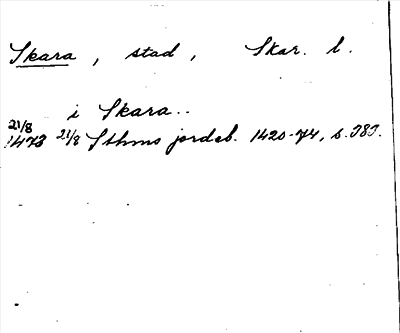 Skara, stad, Skar. l.
i Skara..
21/8
1473 21/8 Sthms jordeb. 1420-74, s. 383.